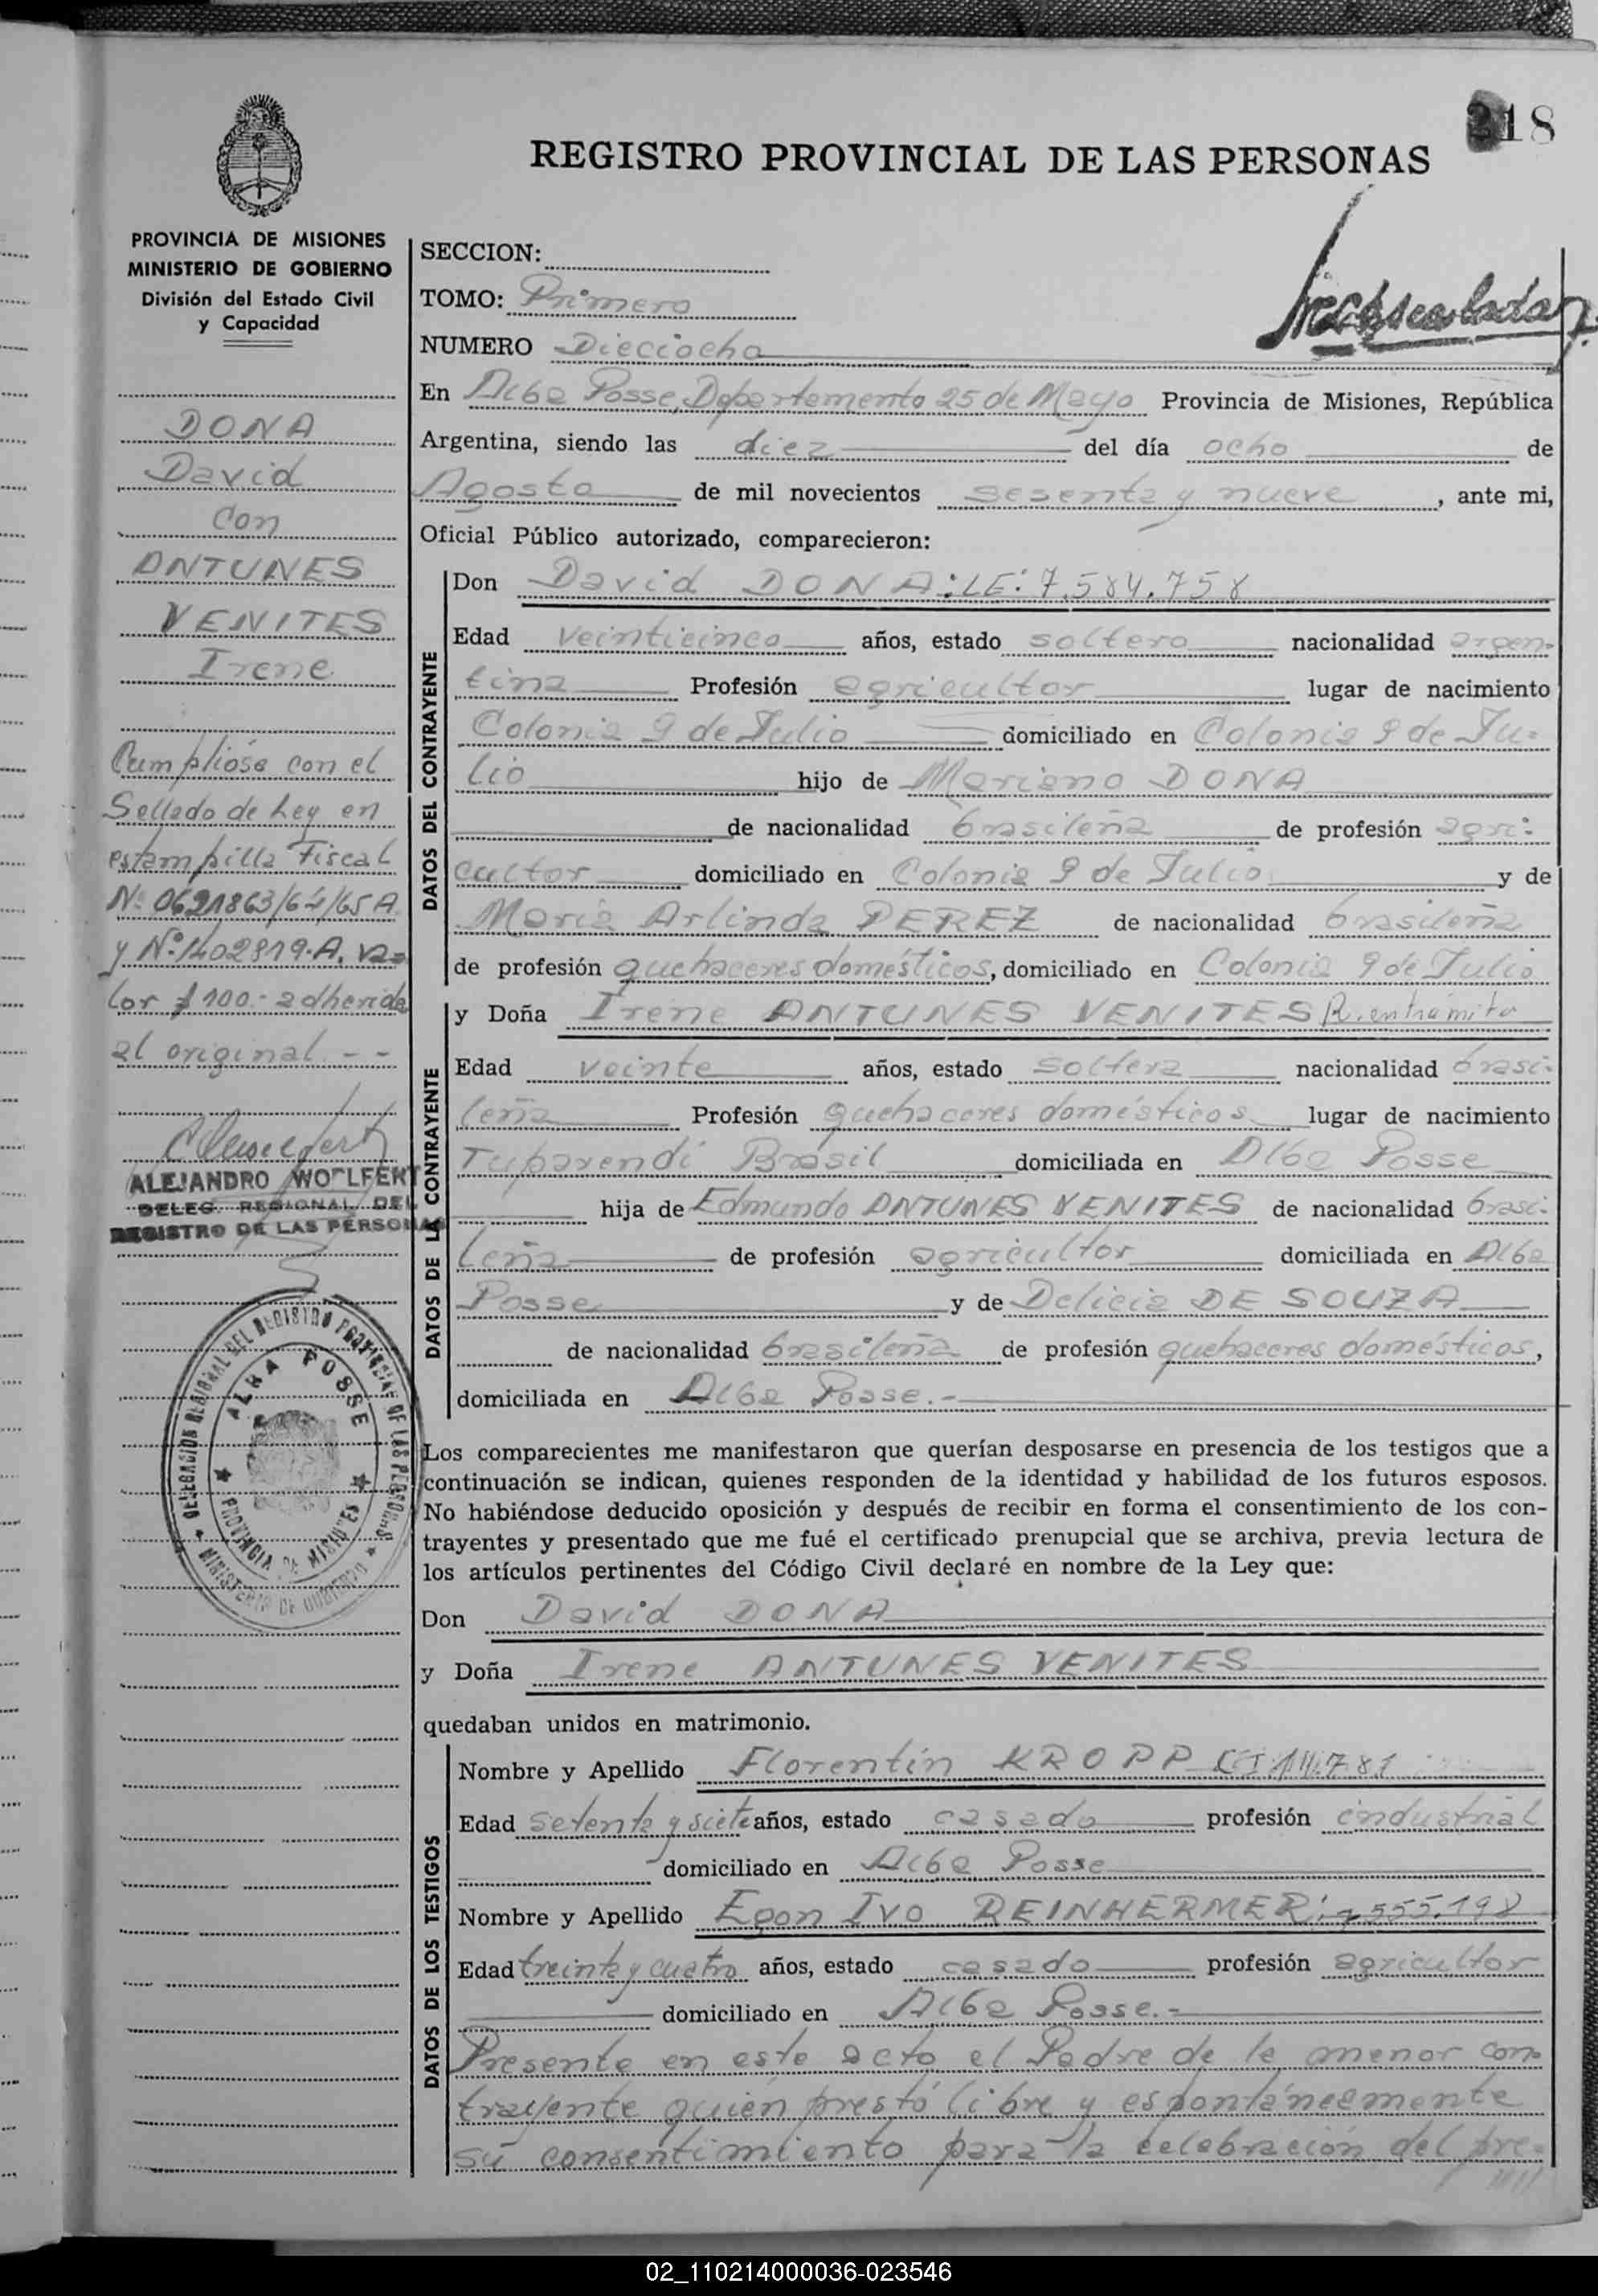 18
REGISTRO PROVINCIAL DE LAS PERSONAS
PROVINCIA DE MISIONES
MINISTERIO DE GOBIERNO
División del Estado Civil
y Capacidad
DONA
David
con
ANTUNES
VENITES
Irene
Cumplióse con el
Sellado de Ley en
estampilla Fiscal
Nº 0621863/64/65 A
y Nº 1402819.A. va=
lor $ 100.- adherida
al original. - -
ALEJANDRO WOLFERT
DELEG. REGIONAL DEL
REGISTRO DE LAS PERSONAS
DELEGACION REGIONAL DEL REGISTRO PROVINCIAL DE LAS PERSONAS
ALBA POSSE
PROVINCIA DE MISIONES
MINISTERIO DE GOBIERNO
SECCION:
TOMO: Primero
NUMERO Dieciocho
En Alba Posse, Departamento 25 de Mayo Provincia de Misiones, República
Argentina, siendo las diez del día ocho de
Agosto de mil novecientos sesenta y nueve, ante mi,
Oficial Público autorizado, comparecieron:
DATOS DEL CONTRAYENTE
Don David DONA:LE: 7.584.758
Edad veinticinco años, estado soltero nacionalidad argen-
tina Profesión agricultor lugar de nacimiento
Colonia 9 de Julio domiciliado en Colonia 9 de Ju-
lio hijo de Mariano DONA
de nacionalidad brasileña de profesión agri-
cultor domiciliado en Colonia 9 de Julio y de
Maria Arlinda PEREZ de nacionalidad brasileña
de profesión quehaceres domésticos, domiciliado en Colonia 9 de Julio
DATOS DE LA CONTRAYENTE
y Doña Irene ANTUNES VENITES R. en trámite
Edad veinte años, estado soltera nacionalidad brasi-
leña Profesión quehaceres domésticos lugar de nacimiento
Tuparendí Brasil domiciliada en Alba Posse
hija de Edmundo ANTUNES VENITES de nacionalidad brasi-
leña de profesión agricultor domiciliada en Alba
Posse y de Delicia DE SOUZA
de nacionalidad brasileña de profesión quehaceres domésticos,
domiciliada en Alba Posse.-
Los comparecientes me manifestaron que querían desposarse en presencia de los testigos que a
continuación se indican, quienes responden de la identidad y habilidad de los futuros esposos.
No habiéndose deducido oposición y después de recibir en forma el consentimiento de los con-
trayentes y presentado que me fué el certificado prenupcial que se archiva, previa lectura de
los artículos pertinentes del Código Civil declaré en nombre de la Ley que:
Don David DONA
y Doña Irene ANTUNES VENITES
quedaban unidos en matrimonio.
DATOS DE LOS TESTIGOS
Nombre y Apellido Florentín KROPP CI 14.781
Edad setenta y siete años, estado casado profesión industrial
domiciliado en Alba Posse
Nombre y Apellido Egon Ivo REINHERMER: 7.555.198
Edad treinta y cuatro años, estado casado profesión agricultor
domiciliado en Alba Posse.-
Presente en este acto el Padre de la menor con-
trayente quién prestó libre y espontáneamente
su consentimiento para la celebración del pre-
02_110214000036-023546